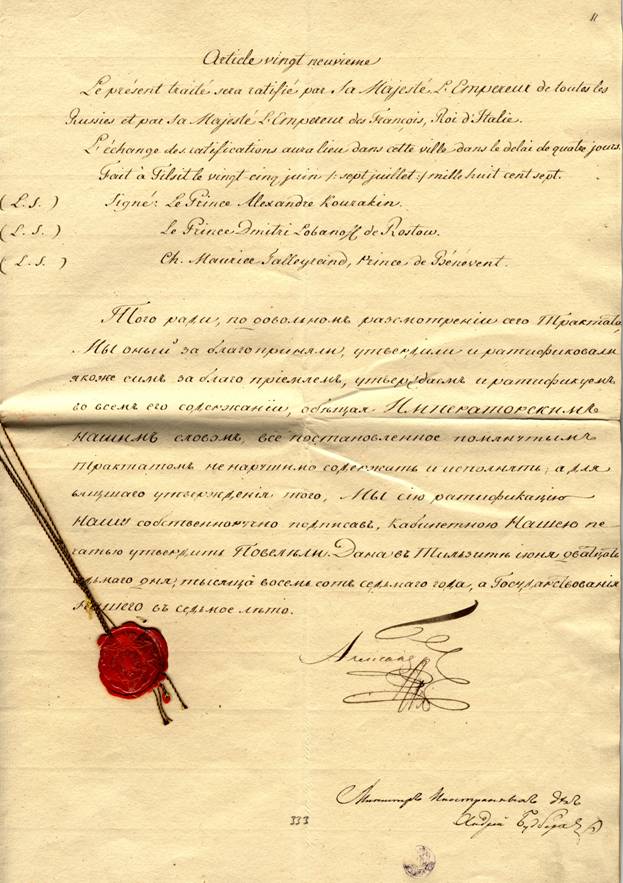 11
Article vingt neuvième
Le présent traité sera ratifié par Sa Majesté L'Empereur de toutes les
Russies et par Sa Majesté L'Empereur des François, Roi d'Italie.
L'échange des ratifications aura lieu dans cette ville dans le délai de quatre jours.
Fait à Tilsit le vingt cinq juin /: sept juillet :/ mille huit cent sept.
(L.S.) Signé: Le Prince Alexandre Kourakin.
(L.S.) Le Prince Dmitri Lobanoff de Rostow.
(L.S.) Ch. Maurice Talleyrand, Prince de Bénévent.
Того ради, по довольномъ разсмотреніи сего Трактата,
Мы оный за благо приняли, утвердили и ратификовали
якоже симъ за благо пріемлемъ, утверждаемъ и ратификуемъ
во всемъ его содержаніи, обѣщая Императорскимъ
Нашимъ словомъ, все постановленное помянутымъ
Трактатомъ ненарушимо содержать и исполнять; а для
вящшаго утвержденія того, Мы сію ратификацію
Нашу собственноручно подписавъ, кабинетною Нашею пе-
чатью утвердить Повелѣли. Дана въ Тильзитѣ іюня
дня, тысяща восемь сотъ седьмаго года, а Государствованія
Нашего въ седьмое лѣто.
Александръ
Министръ Иностранныхъ дѣлъ
Андрей Будбергъ
333